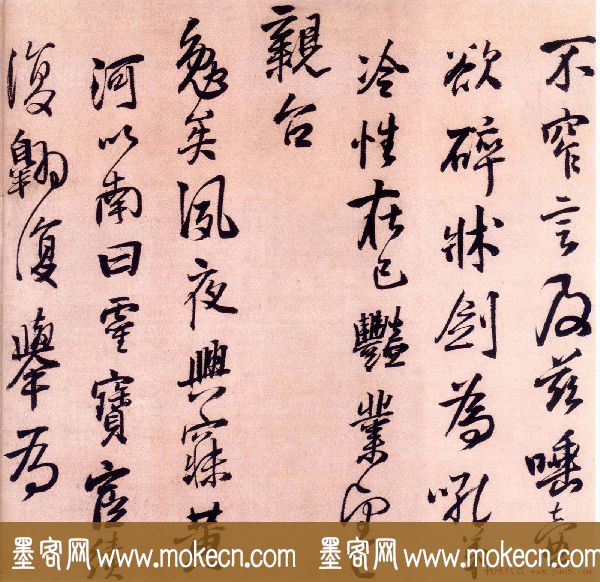 不窄言及茲唾壺
欲碎牀劍為吼
冷性在已豔業
親台
勉矣夙夜興寐黃
河以南曰靈寶宦績
復翱復舉為
墨客网 www.mokecn.com 墨客网 www.mokecn.com